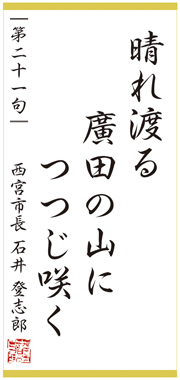 晴れ渡る
廣田の山に
つつじ咲く
第二十一句
西宮市長 石井 登志郎